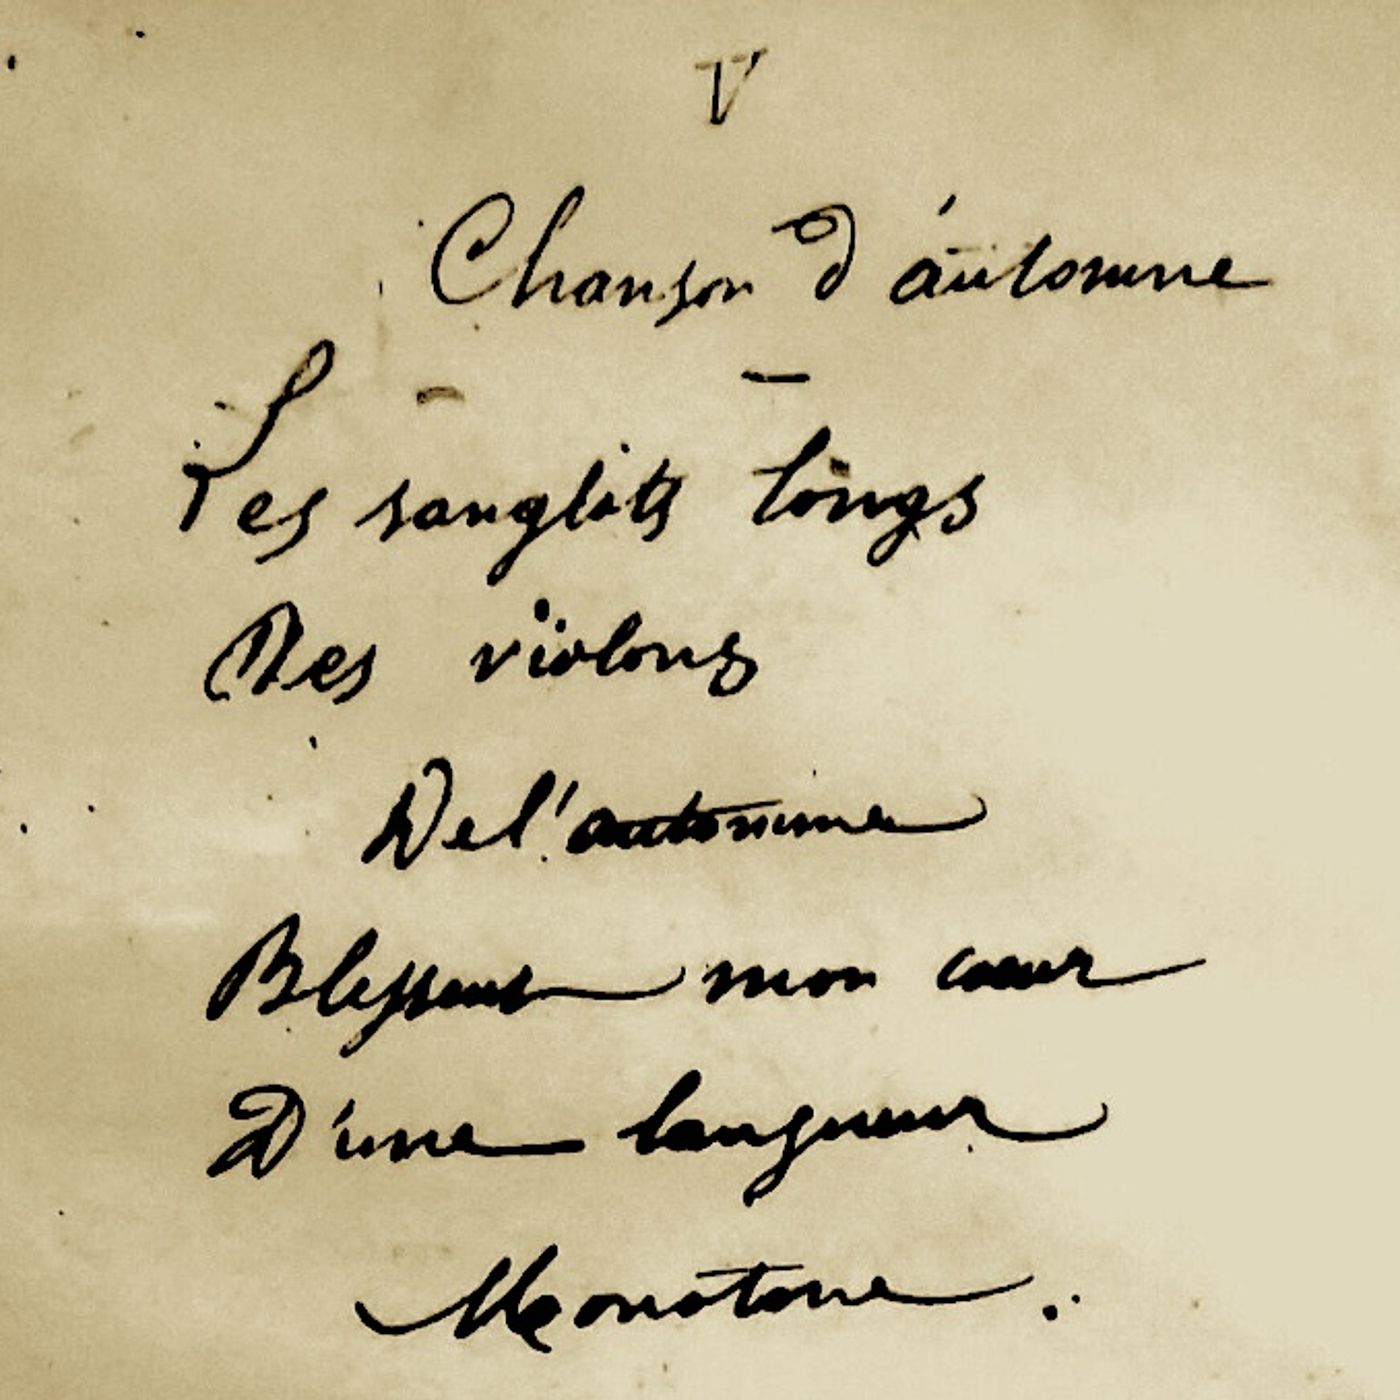 V
Chanson d'automne
Les sanglots longs
Des violons
De l'automne
Blessent mon cœur
D'une langueur
Monotone.